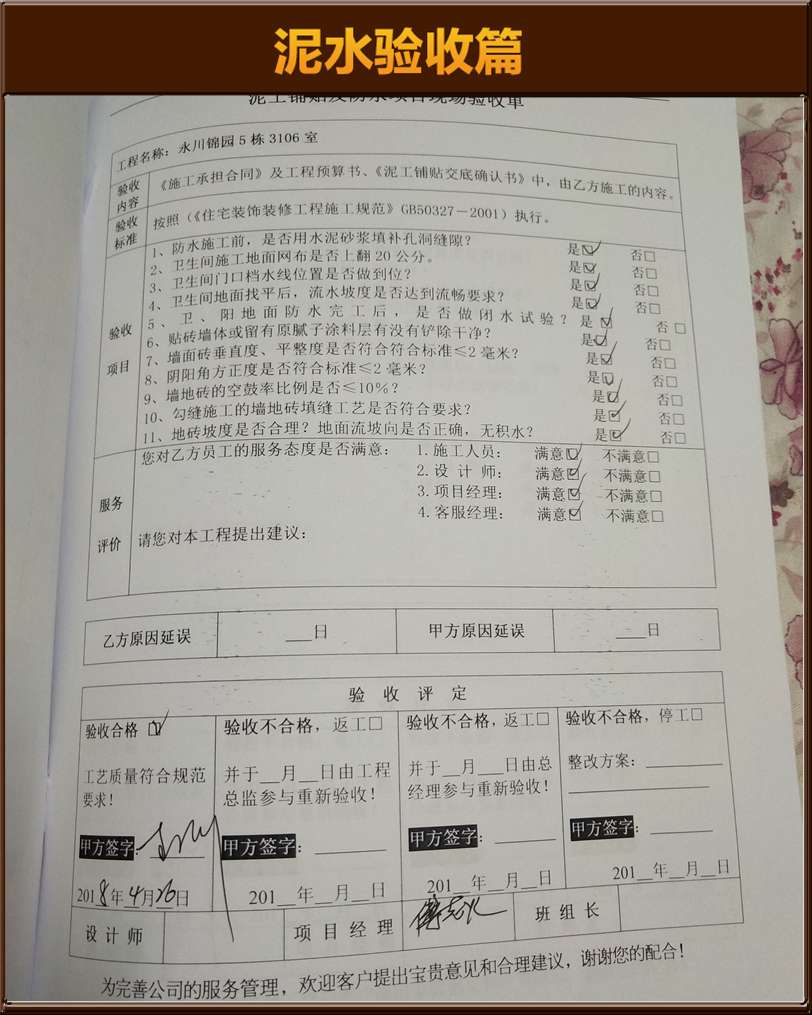 泥水验收篇
泥工铺贴及防水项目现场验收单
工程名称：永川锦园5栋3106室
验收内容 《施工承担合同》及工程预算书、《泥工铺贴交底确认书》中，由乙方施工的内容。
验收标准 按照（《住宅装饰装修工程施工规范》GB50327－2001）执行。
验收项目
1、防水施工前，是否用水泥砂浆填补孔洞缝隙？ 是☑ 否□
2、卫生间施工地面网布是否上翻20公分。 是☑ 否□
3、卫生间门口档水线位置是否做到位？ 是☑ 否□
4、卫生间地面找平后，流水坡度是否达到流畅要求？ 是☑ 否□
5、卫、阳地面防水完工后，是否做闭水试验？ 是☑ 否□
6、贴砖墙体或留有原腻子涂料层有没有铲除干净？ 是☑ 否□
7、墙面砖垂直度、平整度是否符合符合标准≤2毫米？ 是☑ 否□
8、阴阳角方正度是否符合标准≤2毫米？ 是☑ 否□
9、墙地砖的空鼓率比例是否≤10%？ 是☑ 否□
10、勾缝施工的墙地砖填缝工艺是否符合要求？ 是☑ 否□
11、地砖坡度是否合理？地面流坡向是否正确，无积水？ 是☑ 否□
服务评价
您对乙方员工的服务态度是否满意： 1.施工人员： 满意☑ 不满意□
2.设 计 师： 满意☑ 不满意□
3.项目经理： 满意☑ 不满意□
4.客服经理： 满意☑ 不满意□
请您对本工程提出建议：
乙方原因延误 ___日 甲方原因延误 ___日
验 收 评 定
验收合格 ☑
工艺质量符合规范
要求！
甲方签字：
2018年4月26日
验收不合格，返工□
并于__月__日由工程
总监参与重新验收！
甲方签字：______
201__年__月__日
验收不合格，返工□
并于__月__日由总
经理参与重新验收！
甲方签字：______
201__年__月__日
验收不合格，停工□
整改方案：______
甲方签字：______
201__年__月__日
设计师 项目经理 班组长
为完善公司的服务管理，欢迎客户提出宝贵意见和合理建议，谢谢您的配合！